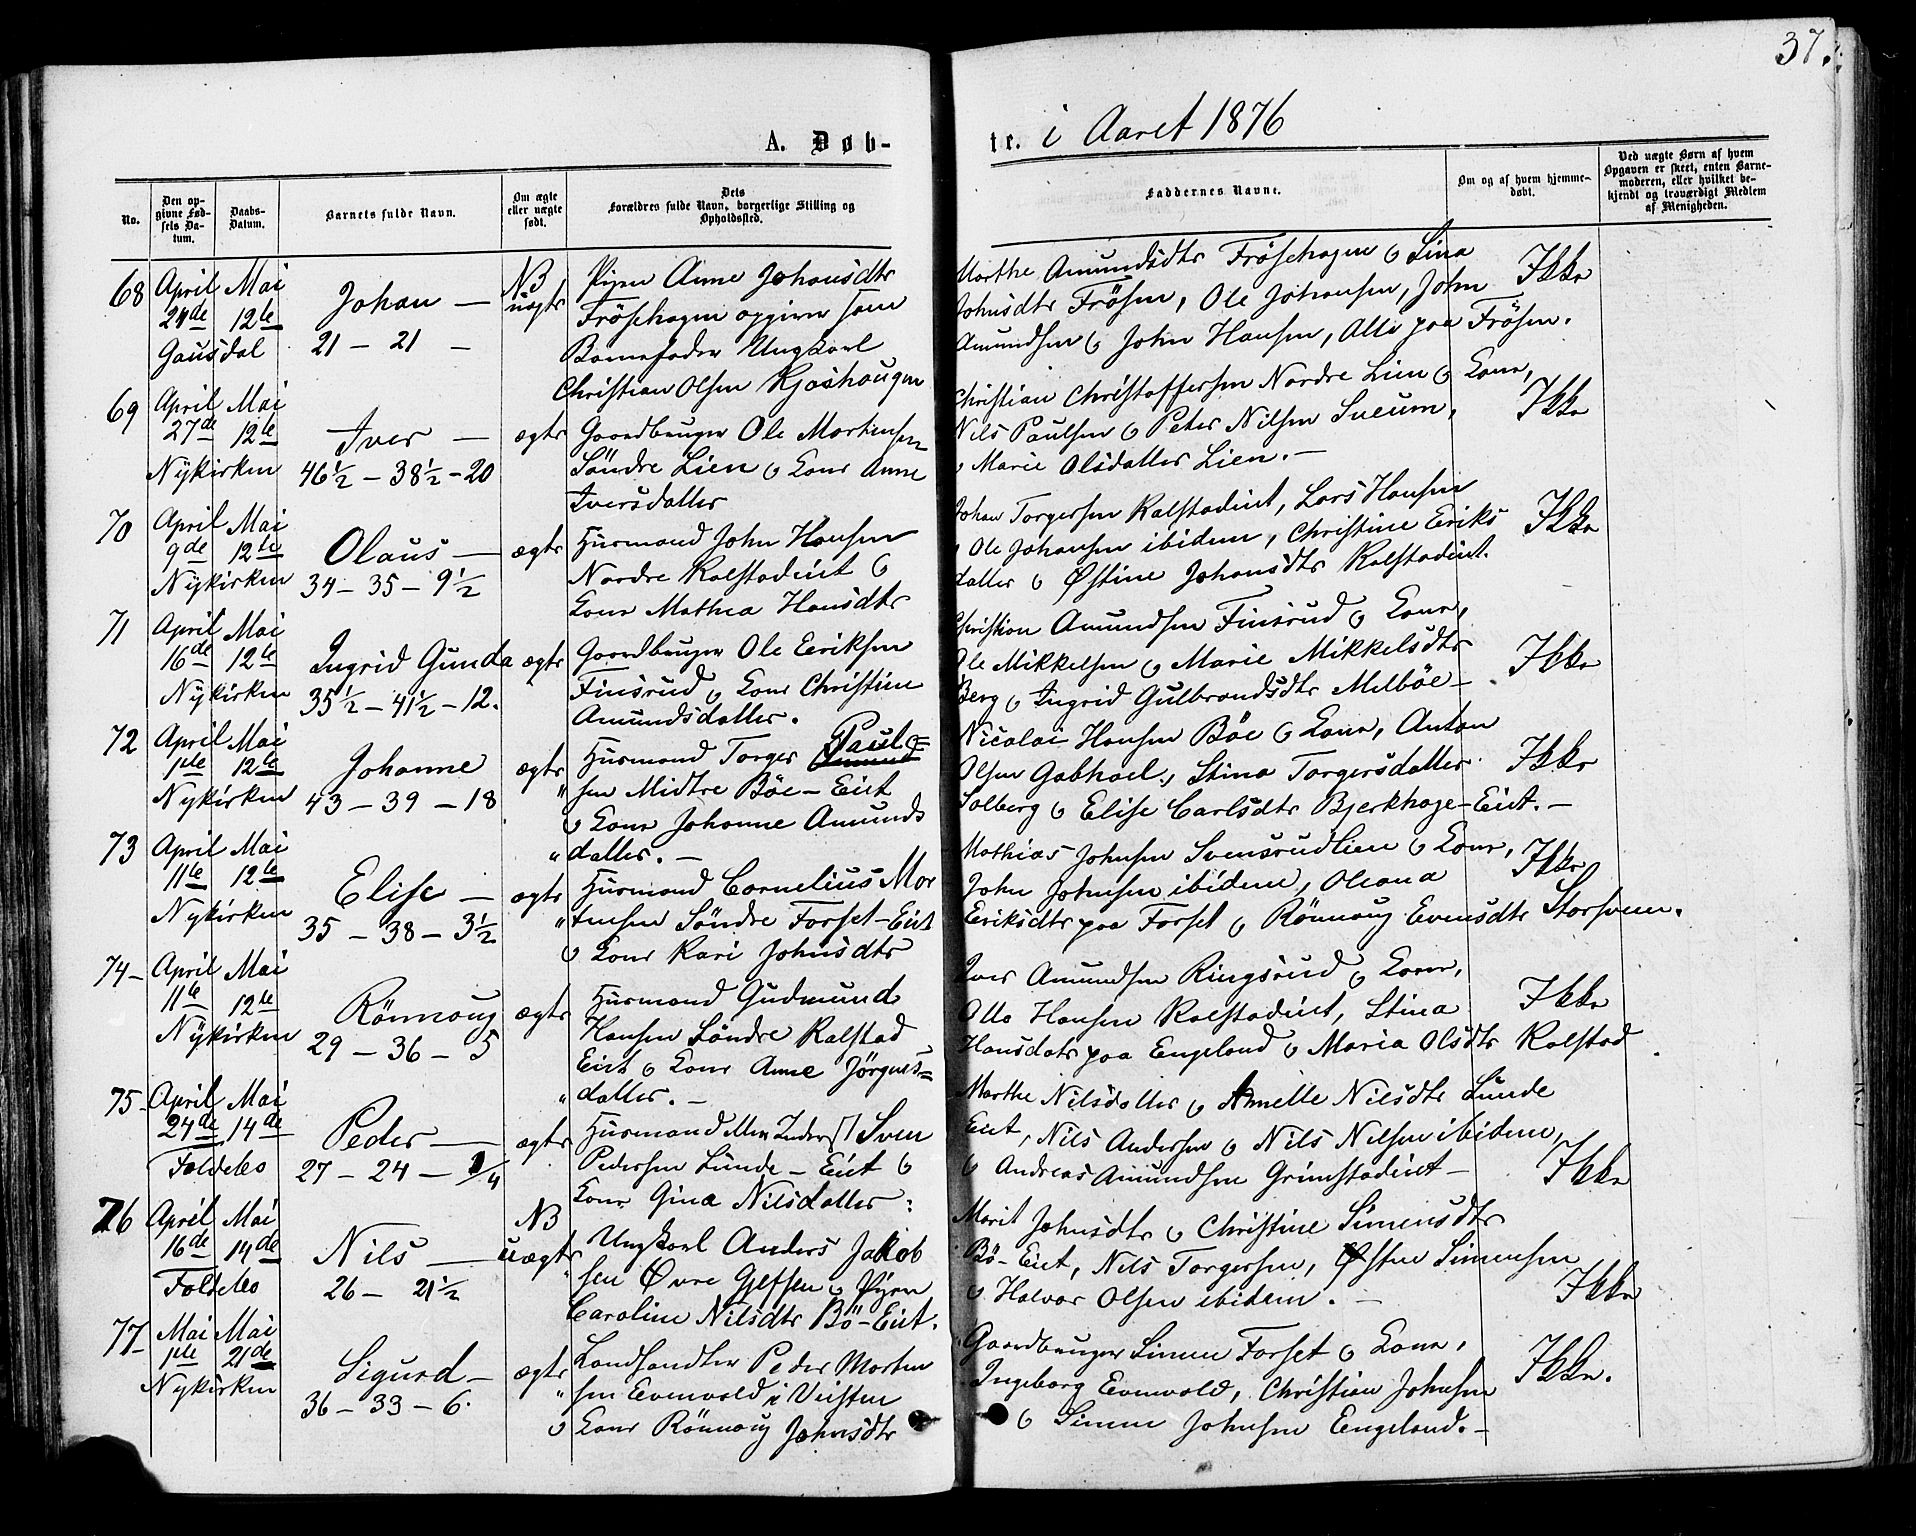 37.
A. Døb-
te. i Aaret 1876
No.
Den op-
givne Fød-
sels Da-
tum.
Daabs-
Datum.
Barnets fulde Navn.
Om ægte
eller uægte
født.
Dets
Forældres fulde Navn, borgerlige Stilling og
Opholdssted.
Faddernes Navne.
Om og af hvem hjemme-
døbt.
Ved uægte Børn af hvem
Opgaven er skeet, enten Barne-
moderen, eller hvilket be-
kjendt og troværdigt Medlem
af Menigheden.
68 April Mai
24de 12te
Gausdal
Johan —
21 — 21 —
NB
uægte
Pigen Anne Johansdtr
Frösehagen opgiver som
Barnefader Ungkarl
Christian Olsen Kjoshaugen
Marthe Amundsdtr Frösehagen o Lina
Johnsdtr Frösen, Ole Johansen, John
Amundsen o John Hansen, Alle paa Frösen.
Ikke
69 April Mai
27de 12te
Nykirken
Iver —
46½ — 38½ — 20
ægte
Gaardbruger Ole Mortensen
Söndre Lien o Kone Anne
Iversdatter
Christian Christoffersen Nordre Lien o Kone,
Nils Paulsen o Peter Nilsen Sveum,
o Marie Olsdatter Lien. —
Ikke
70 April Mai
9de 12te
Nykirken
Olaus —
34 — 35 — 9½
ægte
Husmand John Hansen
Nordre Kalstadeiet o
Kone Mathea Hansdtr
Johan Torgersen Kalstadeiet, Lars Hansen
o Ole Johansen ibidem, Christine Eriks
datter o Østine Johansdtr Kalstadeiet.
Ikke
71 April Mai
16de 12te
Nykirken
Ingrid Gunda
35½ — 41½ — 12.
ægte
Gaardbruger Ole Eriksen
Finsrud o Kone Christine
Amundsdatter.
Christian Amundsen Finsrud o Kone,
Ole Mikkelsen o Marie Mikkelsdtr
Berg o Ingrid Gulbrandsdtr Melböe —
Ikke
72 April Mai
1ste 12te
Nykirken
Johanne
43 — 39 — 18
ægte
Husmand Torger Paul=
sen Midtre Böe — Eiet
o Kone Johanne Amunds
datter. —
Nicolai Hansen Böe o Kone, Anton
Olsen Gabhael, Stina Torgersdatter
Solberg o Elise Carlsdtr Bjerkhage-Eiet. —
Ikke
73 April Mai
11te 12te
Nykirken
Elise —
35 — 38 — 3½
ægte
Husmand Cornelius Mor
tensen Söndre Forset-Eiet
o Kone Kari Johnsdtr
Mathias Johnsen Svensrudlien o Kone,
John Johnsen ibidem, Oleana
Eriksdtr paa Forset o Rönnaug Evensdtr Storsveen.
Ikke
74 — April Mai
11te 12te
Nykirken
Rönnaug
29 — 36 — 5
ægte
Husmand Gudmund
Hansen Söndre Kalstad
Eiet o Kone Anne Jörgens=
datter. —
Iver Amundsen Ringsrud o Kone,
Otto Hansen Kalstadeiet, Stina
Hansdatr paa Engeland o Maria Olsdtr Kalstad
Ikke
75 — April Mai
24de 14de
Foldebo
Peder —
27 — 24 —
ægte
Husmand Sven
Pedersen Lunde — Eiet o
Kone Gina Nilsdatter
Marthe Nilsdatter o Annette Nilsdtr Lunde
Eiet, Nils Andersen o Nils Nilsen ibidem,
o Andreas Amundsen Grimstadeiet —
Ikke
76 April Mai
16de 14de
Foldebo
Nils —
26 — 21½
NB
uægte
Ungkarl Anders Jakob
sen Øvre Gjefsen o Pigen
Caroline Nilsdtr Bö-Eiet.
Marit Johnsdtr o Christine Simensdtr
Bö-Eiet, Nils Torgersen, Østen Simensen
o Halvor Olsen ibidem. —
Ikke
77 — Mai Mai
1ste 21de
Nykirken
Sigurd —
36 — 33 — 6.
ægte
Landhandler Peder Morten
sen Evenvold i Veisten
o Kone Rönnaug Johnsdtr
Gaardbruger Simen Forset o Kone,
Ingeborg Evenvold, Christian Johnsen
o Simen Johnsen Engeland. —
Ikke.